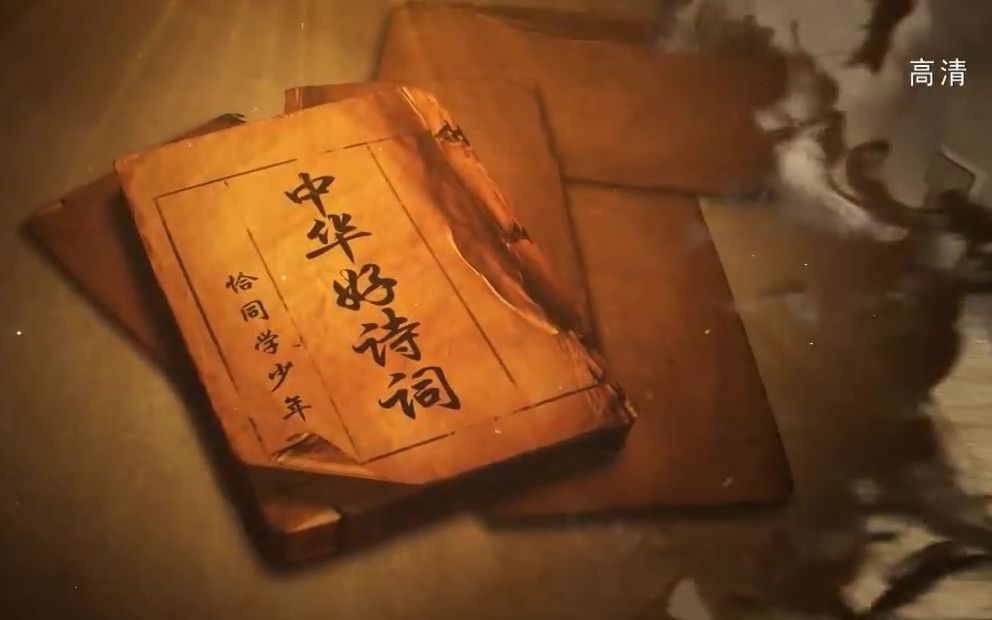 高清
中华好诗词
恰同学少年